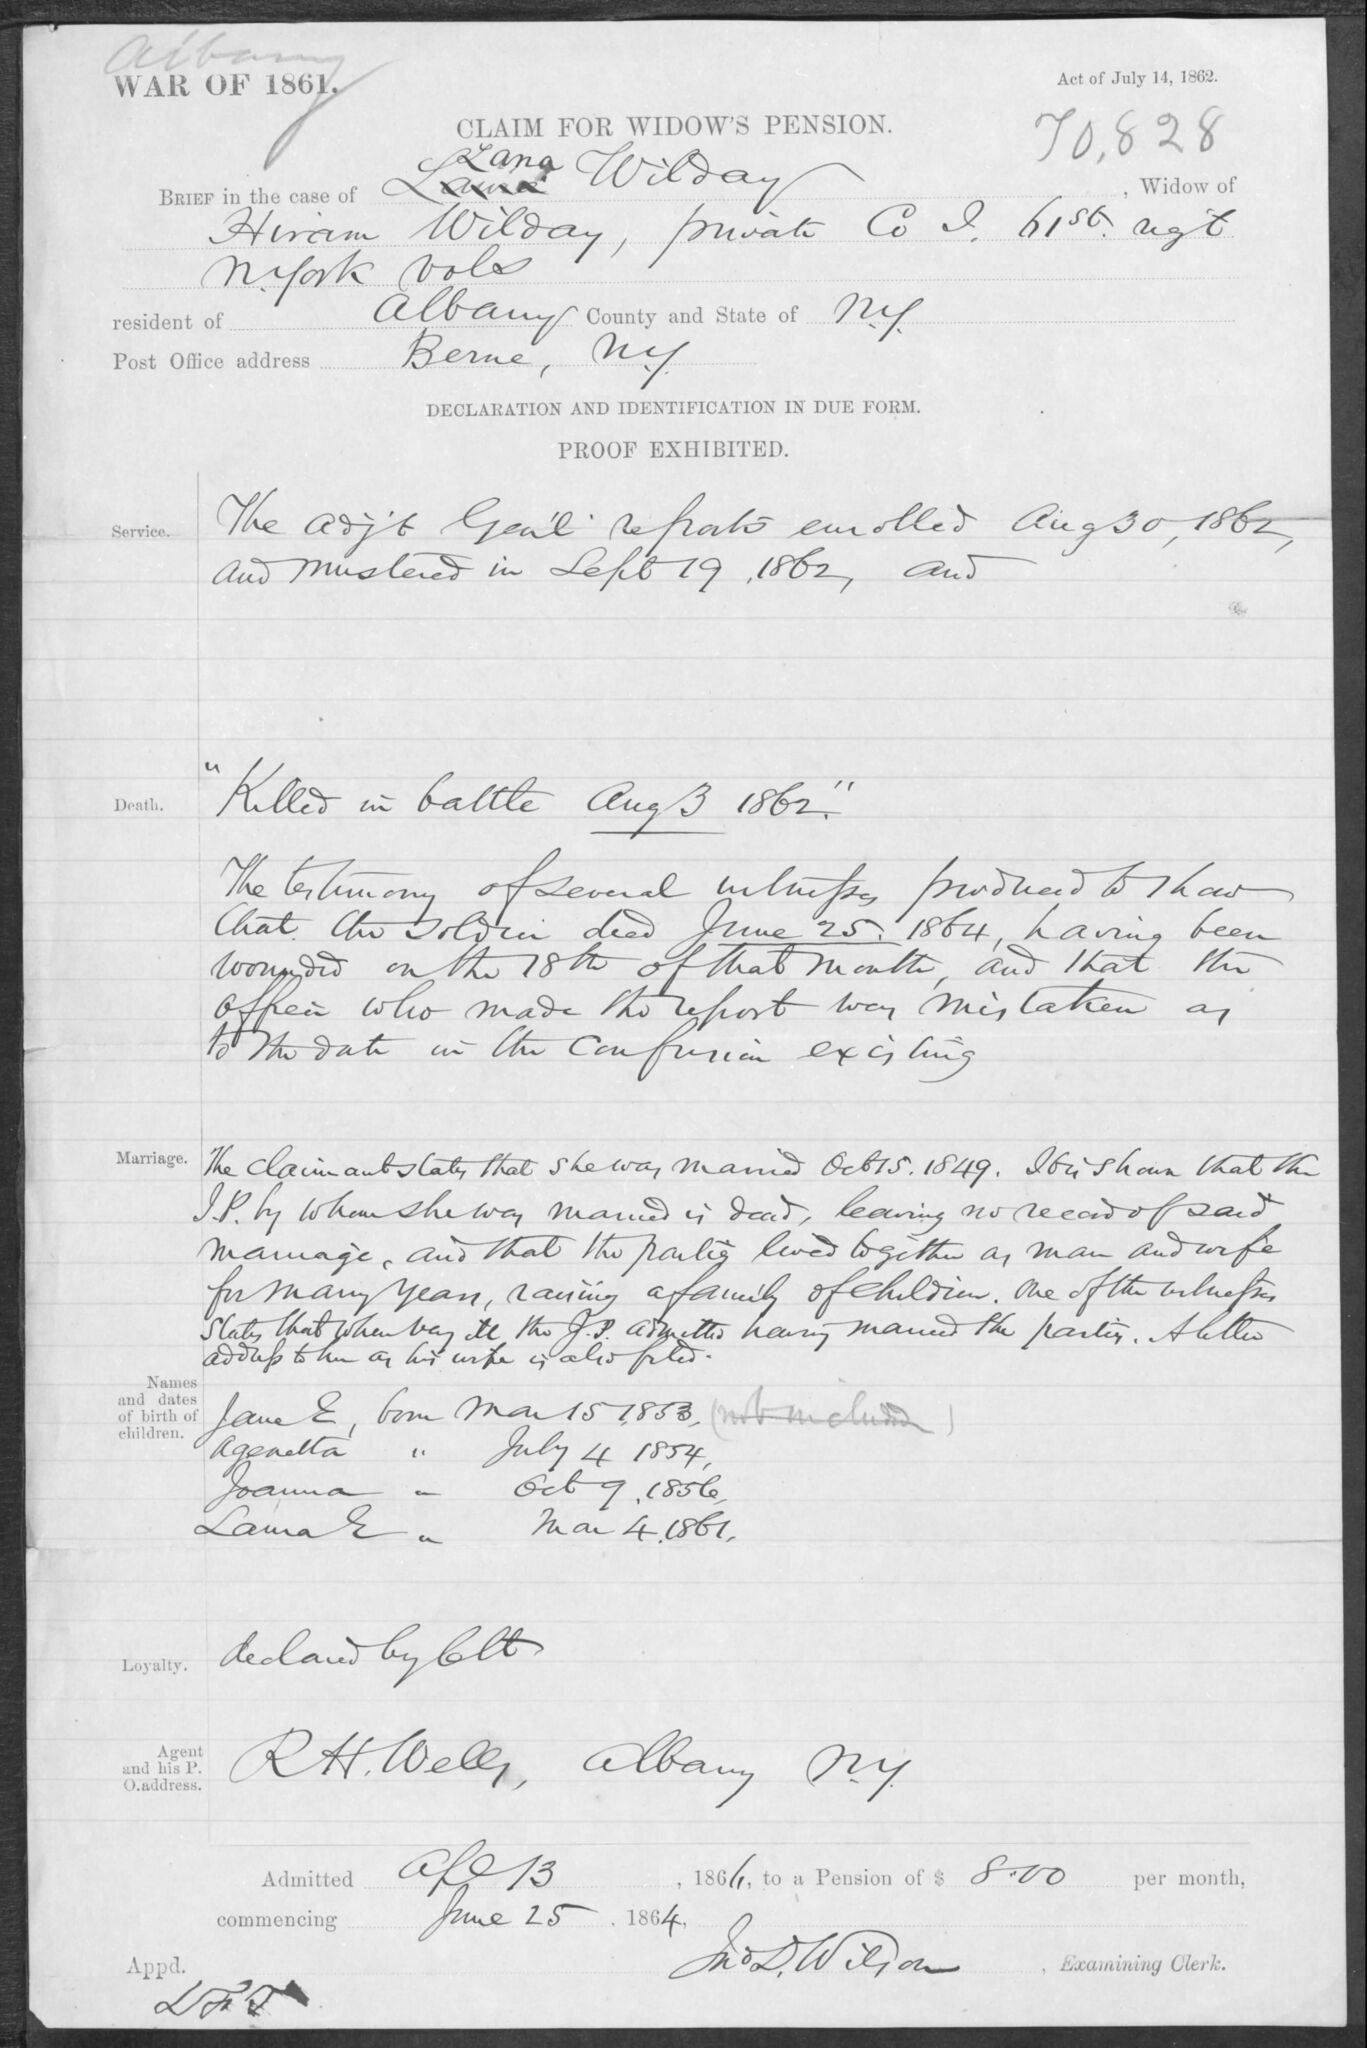 Albany
WAR OF 1861.
Act of July 14, 1862.
CLAIM FOR WIDOW'S PENSION.
70,828
Lana
BRIEF in the case of Laura Wilday, Widow of
Hiram Wilday, private Co I. 61st. regt
N. York vols
resident of Albany County and State of N.Y.
Post Office address Berne, N.Y.
DECLARATION AND IDENTIFICATION IN DUE FORM.
PROOF EXHIBITED.
Service. The adj't Gen'l reports enrolled Aug 30, 1862,
and mustered in Sept 19, 1862, and
Death. "Killed in battle Aug 3 1862."
The testimony of several witnesses produced to show
that the soldier died June 25. 1864, having been
wounded on the 18th of that month, and that the
officer who made the report was mistaken as
to the date in the confusion existing
Marriage. The claimant states that she was married Oct 15. 1849. It is shown that the
J.P. by whom she was married is dead, leaving no record of said
marriage, and that the parties lived together as man and wife
for many years, raising a family of children. One of the witnesses
states that when very ill the J.P. admitted having married the parties. A letter
address to her as his wife is also filed.
Names and dates of birth of children.
Jane E, born Mar 15 1853, (not included)
Agenetta " July 4 1854,
Joanna " Oct 9, 1856,
Laura E " Mar 4, 1861.
Loyalty. declared by Clt
Agent and his P. O. address. R. H. Wells, Albany N.Y.
Admitted Apl 13, 1866, to a Pension of $ 8.00 per month,
commencing June 25, 1864,
Jno D. Wilson, Examining Clerk.
Appd.